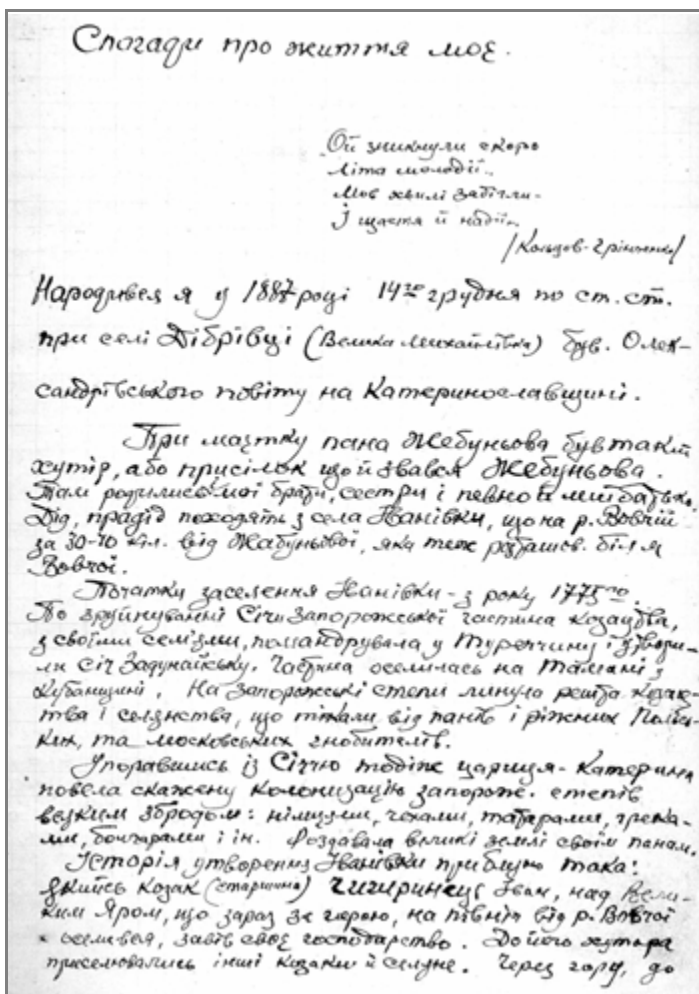 Спогади про життя моє.
Ой зникнули скоро
Літа молодії..
Мов хвилі забігли
І щастя й надії..
/Кольцов-Грінченко/
Народився я у 1887 році 14го грудня по ст. ст.
при селі Дібрівці (Велика Михайлівка) був. Олек-
сандрівського повіту на Катеринославщині.
При маєтку пана Жебуньова був такий
хутір, або присілок що й звався Жебуньова.
Там родились мої брати, сестри і певно й мій батько.
Дід, прадід походять з села Іванівки, що на р. Вовчій
за 30-40 кіл. від Жабуньової, яка теж розташов. біля
Вовчої.
Початки заселення Іванівки - з року 1775го.
По зруйнуванні Січи Запорожської частина козацтва,
з своїми сем'ями, помандрувала у Туреччину і утвори-
ли Січ Задунайську. Частина оселилась на Тамані,
Кубанщині. На запорожські степи линула решта козац-
тва і селянства, що тікали від панів і ріжних Польсь-
ких, та московських гнобителів.
Упоравшись із Січчю тодіж цариця-Катерина
повела скажену колонизацію запорож. степів
всяким збродом: німцями, чехами, татарами, грека-
ми, болгарами і ін. Роздавала великі землі своїм панам.
Історія утворення Іванівки приблизно така:
якийсь козак (старшина) Чигиринець Іван, над Вели-
ким Яром, що зараз за горою, на північ від р. Вовчої
оселився, завів своє господарство. До його хутора
приселювались інші козаки й селяне. Через гору, до